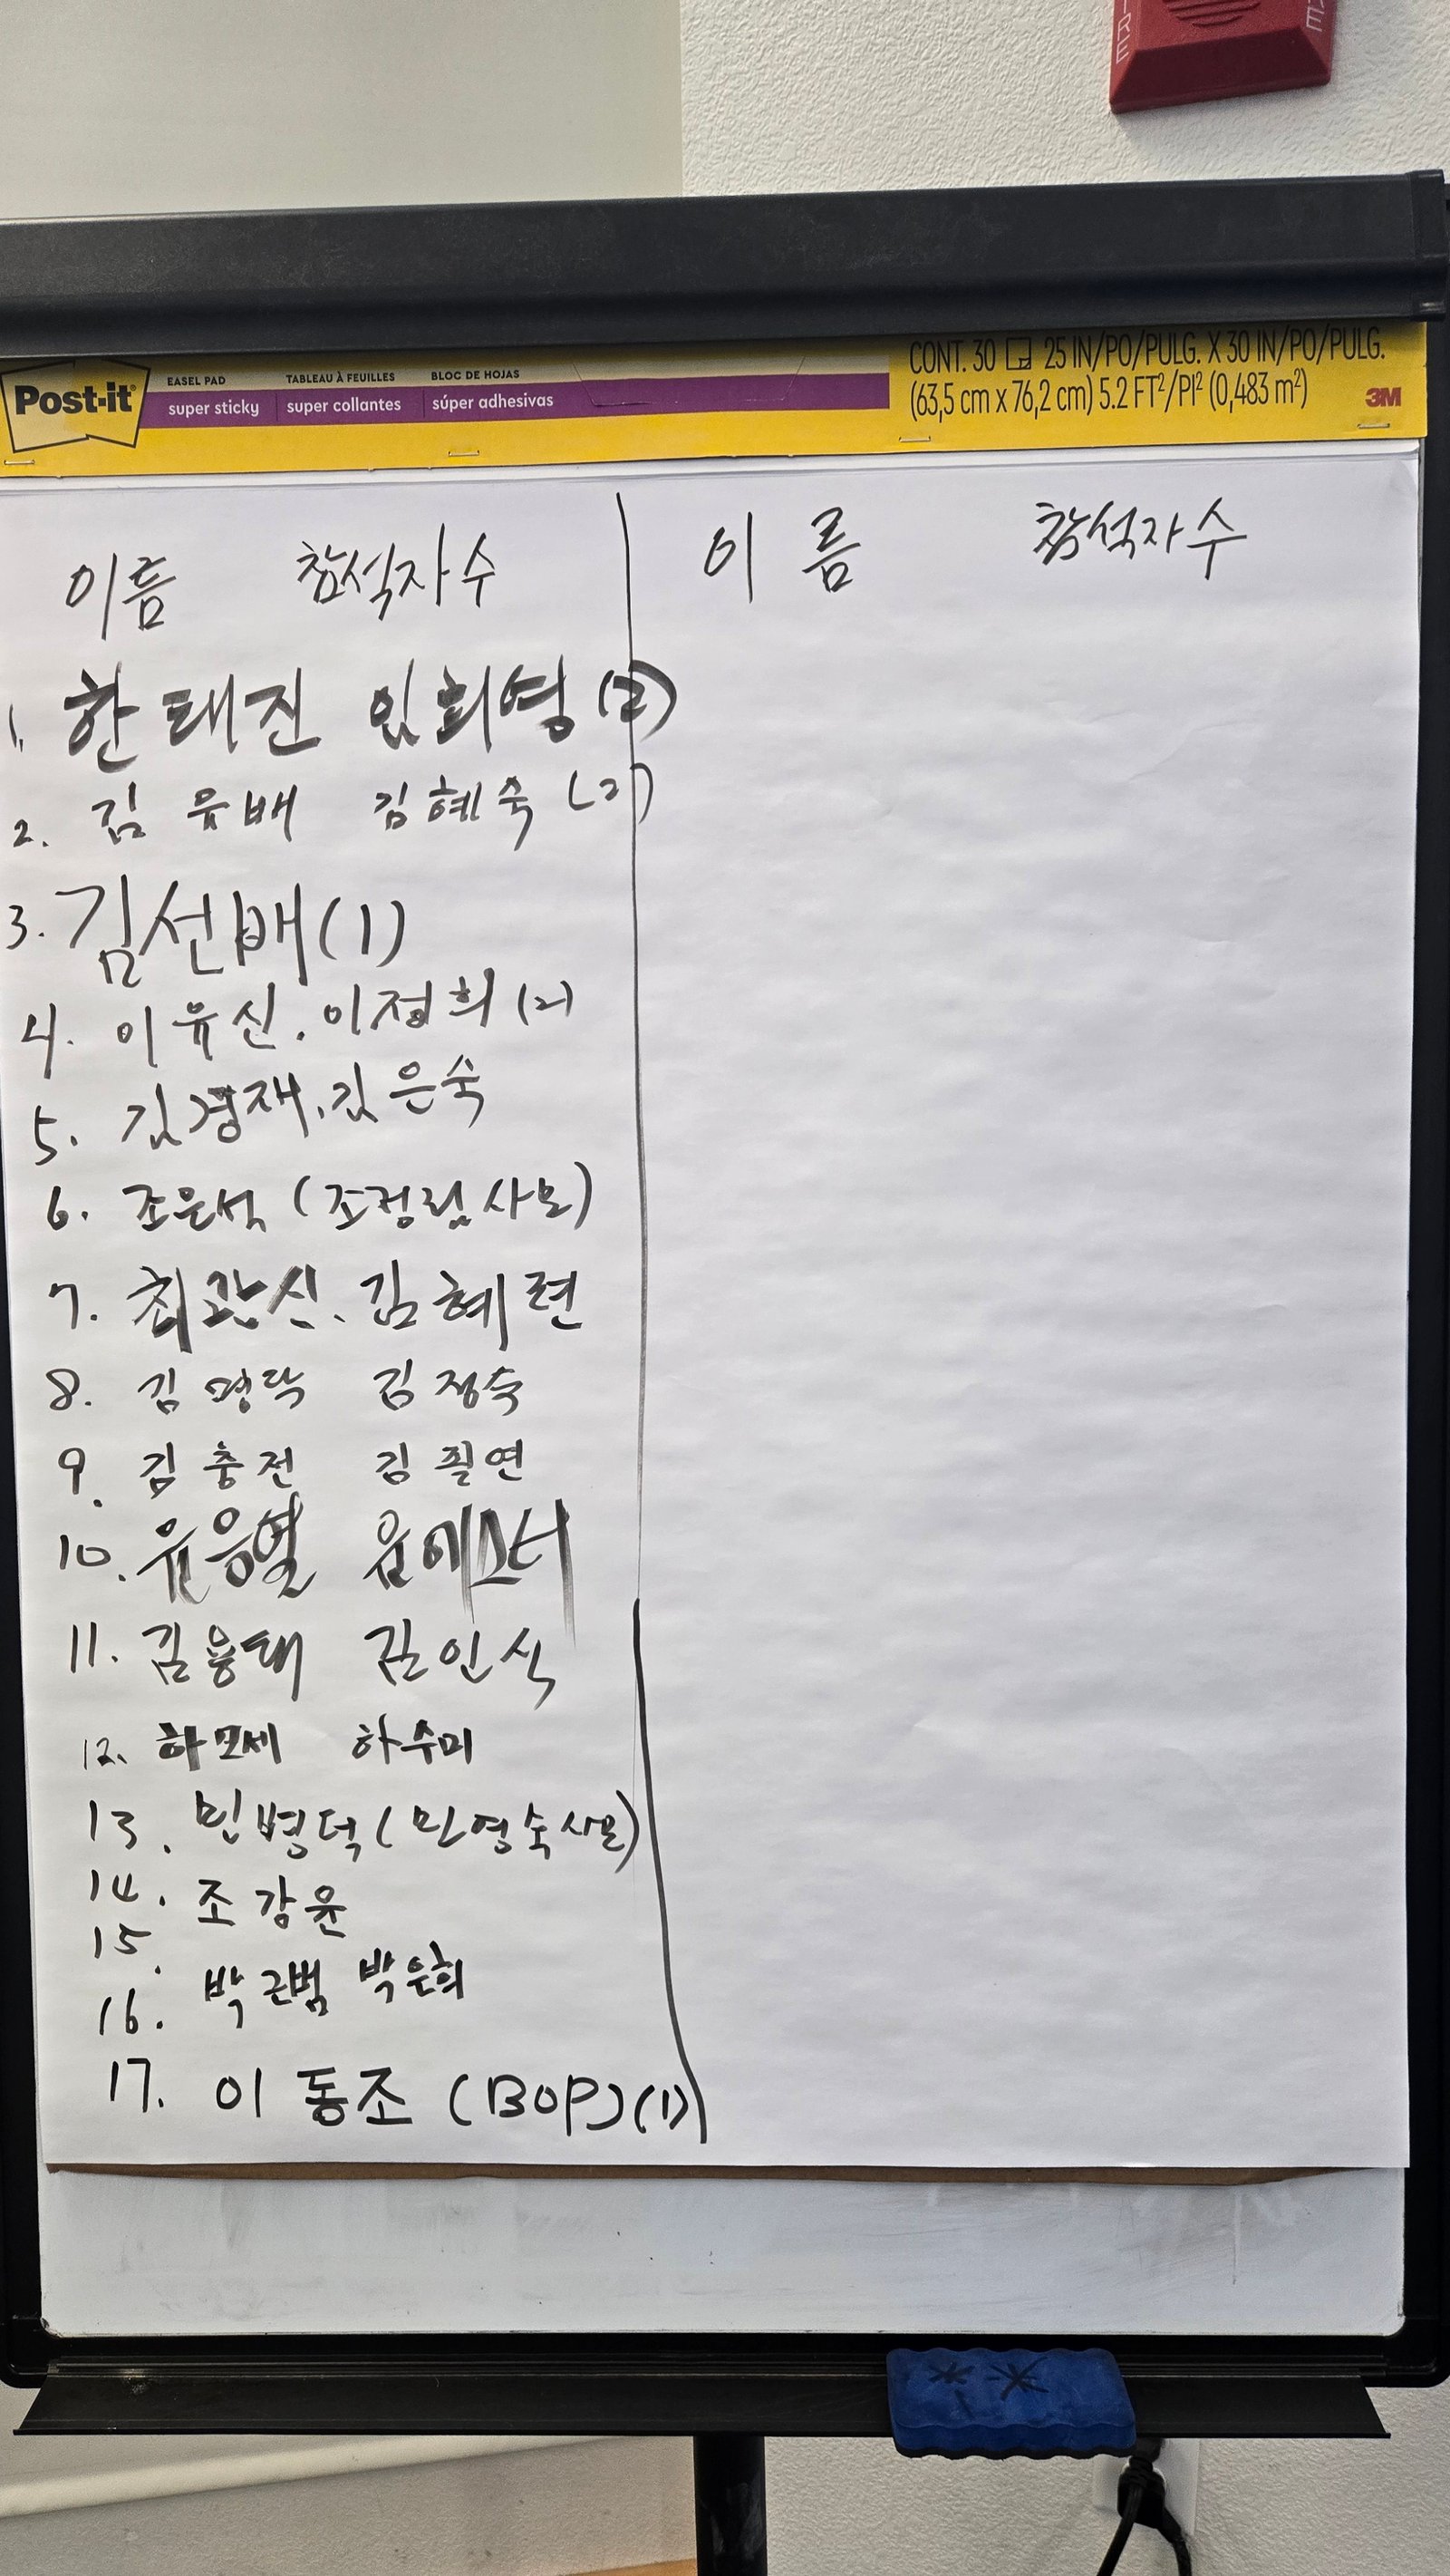 FIRE
Post-it
EASEL PAD TABLEAU À FEUILLES BLOC DE HOJAS
super sticky super collantes súper adhesivas
CONT. 30 25 IN/PO/PULG. X 30 IN/PO/PULG.
(63,5 cm x 76,2 cm) 5.2 FT²/PI² (0,483 m²)
3M
이름 참석자수 이름 참석자수
1. 한태진 임희영 (2)
2. 김유배 김혜숙 (2)
3. 김선배 (1)
4. 이유신. 이정희 (2)
5. 김경재. 김은숙
6. 조은석 (조정림 사모)
7. 최광신. 김혜련
8. 김명락 김정숙
9. 김충전 김필연
10. 유응열 유에스더
11. 김용태 김인식
12. 하모세 하수미
13. 민병덕 (민영숙 사모)
14. 조강윤
15.
박근범 박은희
16.
17. 이동조 (BOP) (1)